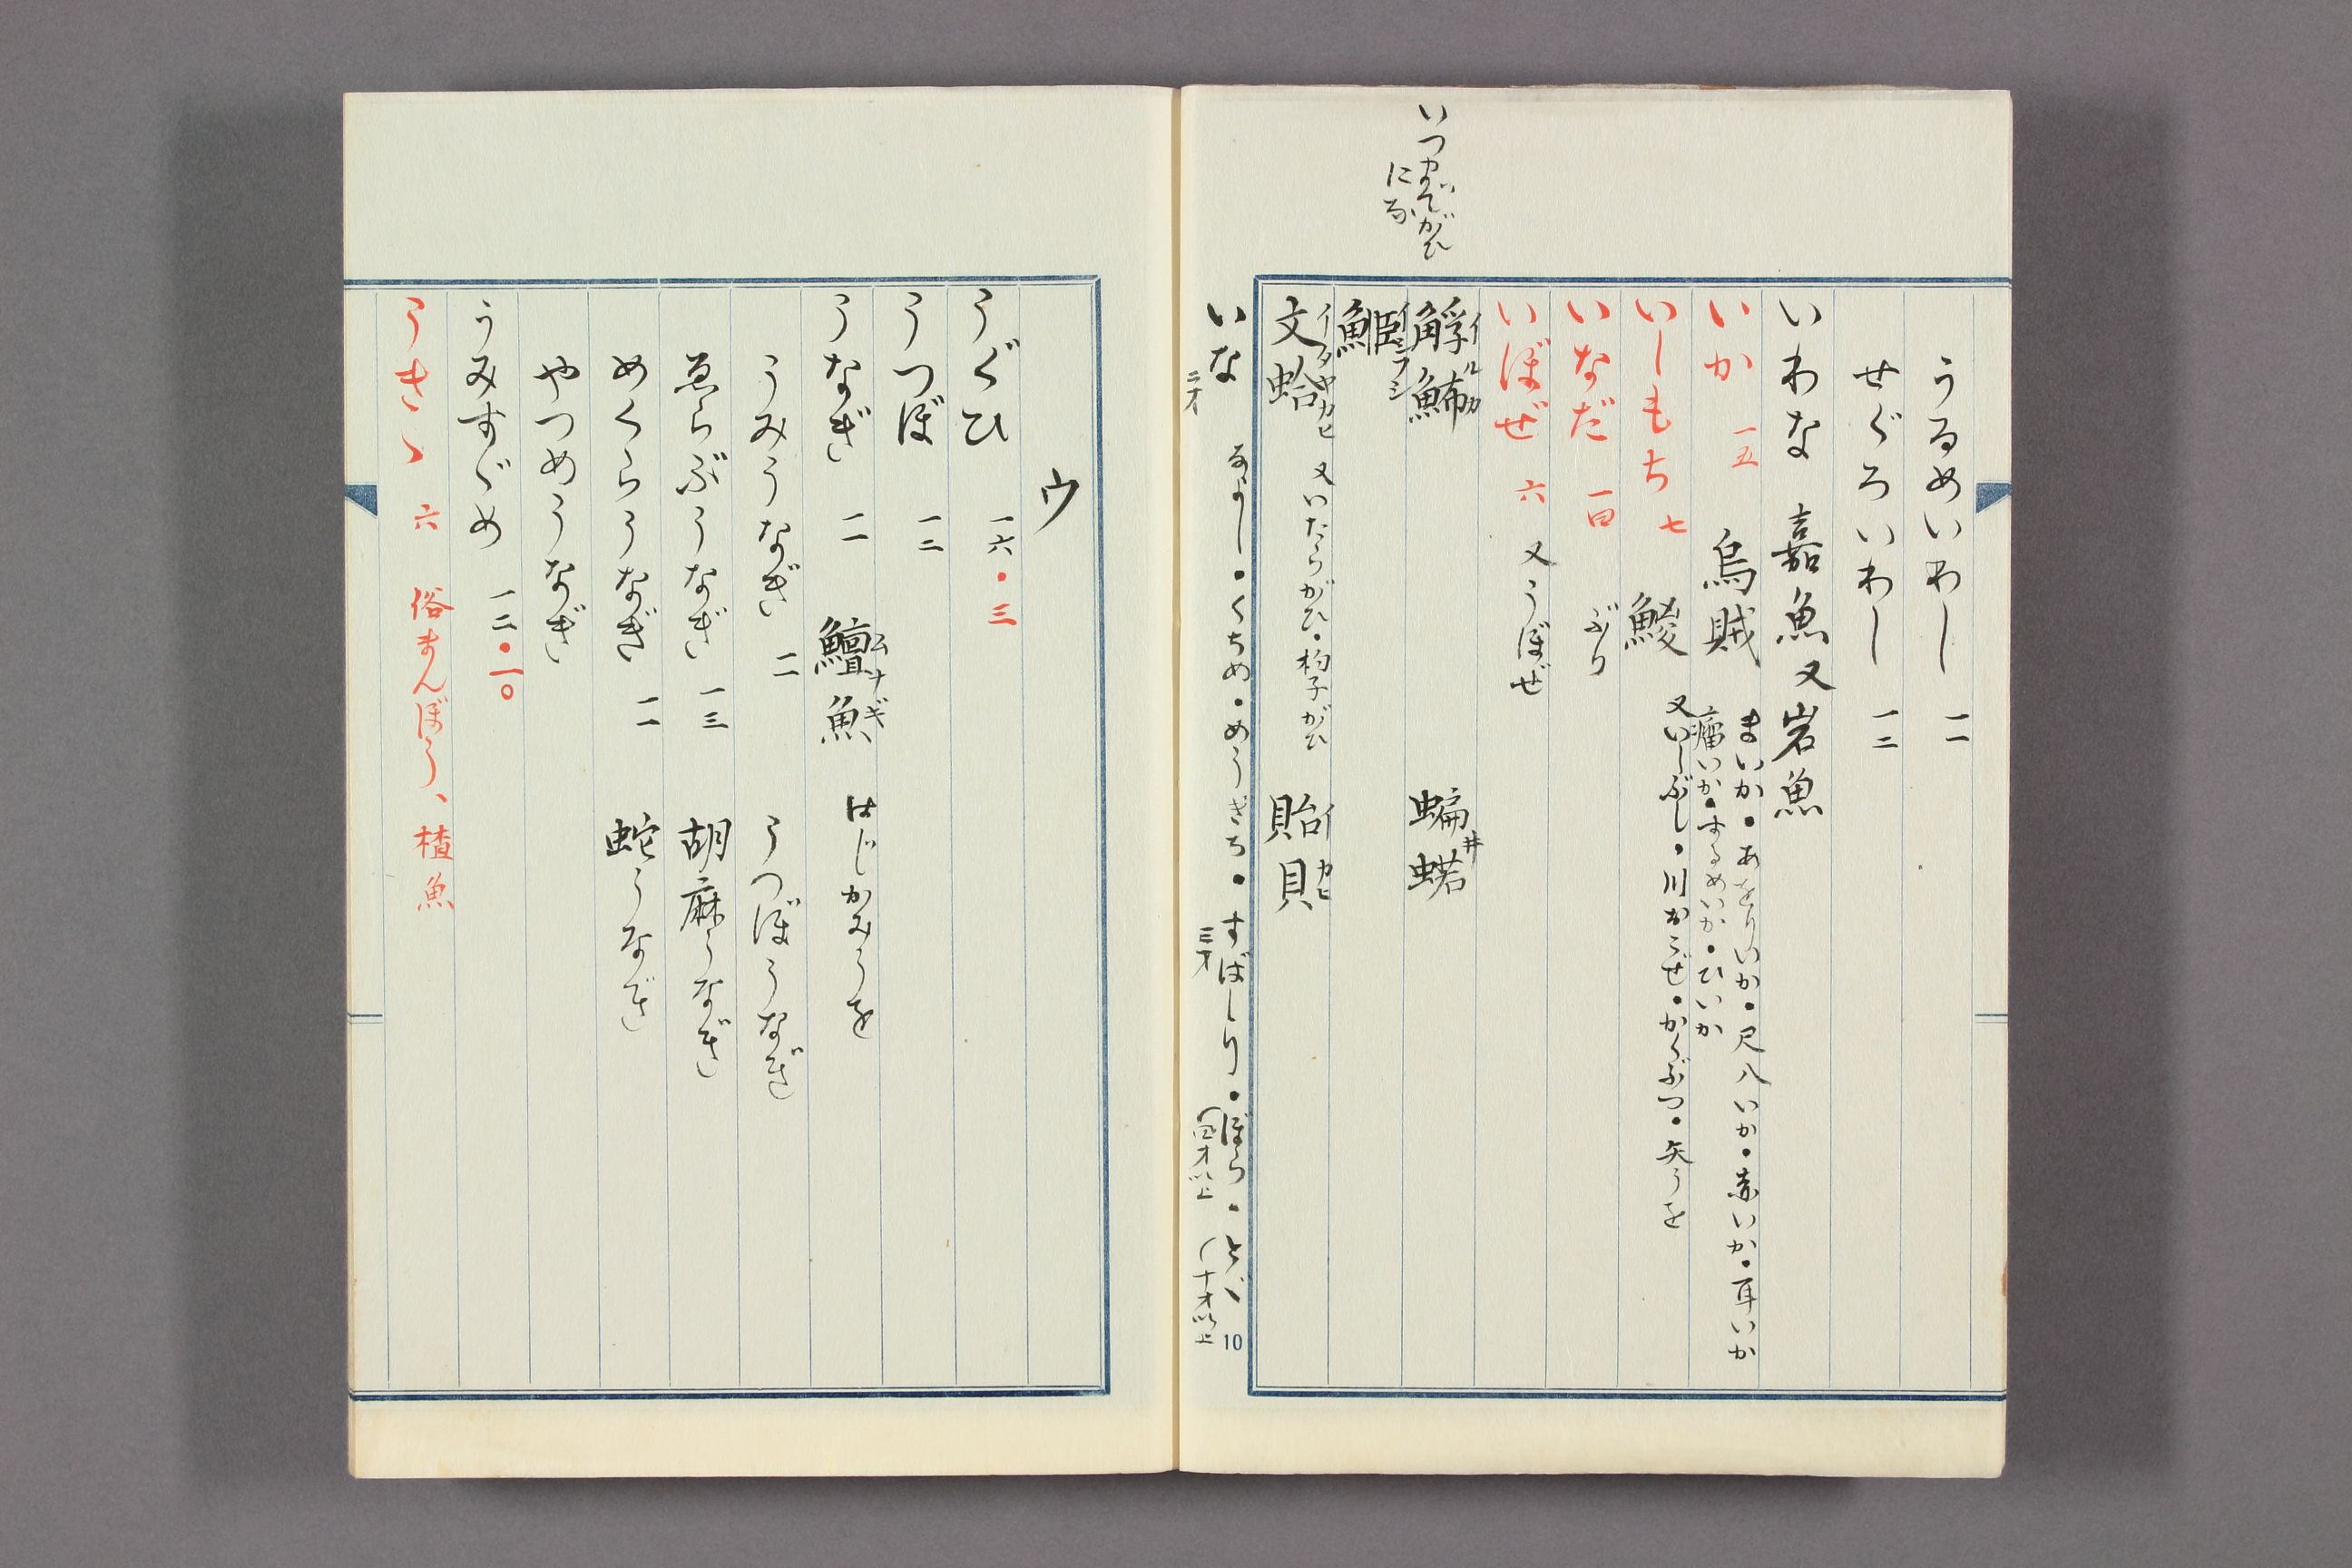 うるめいわし 一一
せぐろいわし 一二
いわな 嘉魚 又 岩魚
いか 一五 烏賊 まいか・あをりいか・尺八いか・赤いか・耳いか
瘤いか・するめいか・ひいか
いしもち 七 鯼 又いしぶし・川おこぜ・かくぶつ・矢うを
いなだ 一四 ぶり
いぼぜ 六 又うぼぜ
イルカ
蝙蝫
イシブシ
イタヤカヒ
文蛤 又いたらがひ・杓子がひ 貽貝 イカヒ
いな 二才 なよし・くちめ・めうきち・すばしり 三才・ぼら (四才以上・とゞ (十才以上
10
ウ
うぐひ 一六・三
うつぼ 一二
うなぎ 一一 鱣魚 ムナギ はじかみうを
うみうなぎ 一一 うつぼうなぎ
ゑらぶうなぎ 一三 胡麻うなぎ
めくらうなぎ 一一 蛇うなぎ
やつめうなぎ
うみすゞめ 一二・一〇
うきゝ 六 俗まんぼう、楂魚